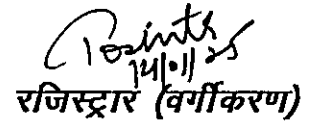 14/01/25
रजिस्ट्रार (वर्गीकरण)